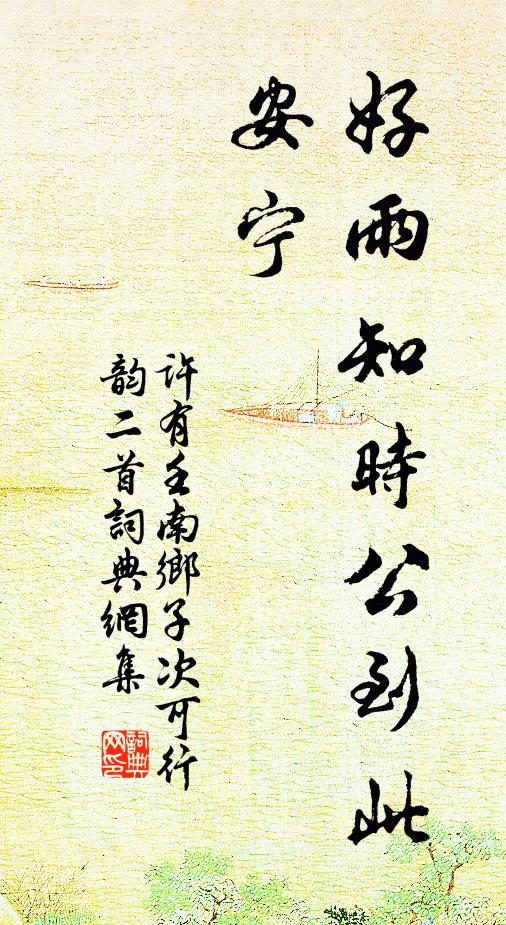 好雨知時公到此
安宁
许有壬南鄉子次可行
韵二首詞典網集
詞典
网印